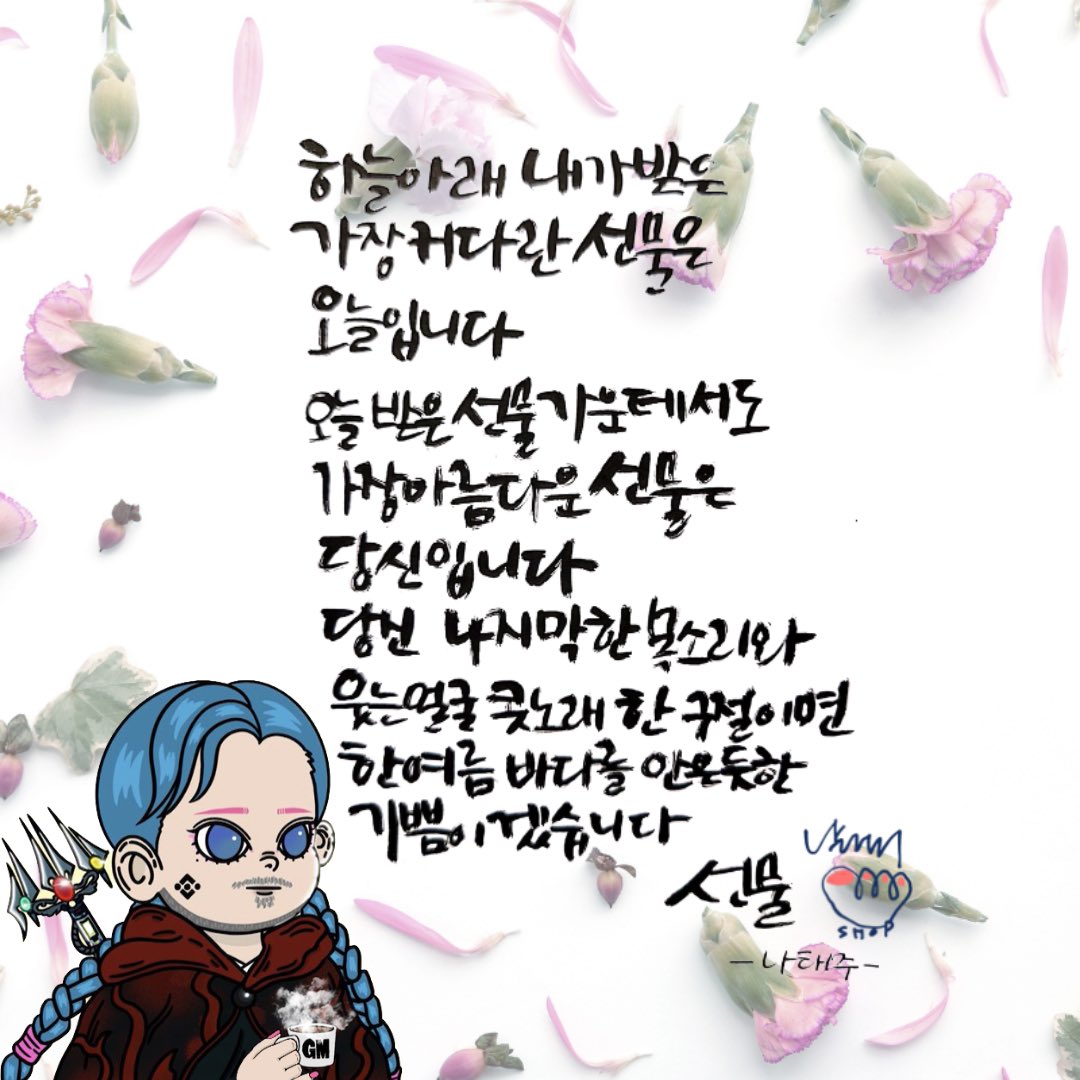 하늘아래 내가 받은
가장 커다란 선물은
오늘입니다
오늘 받은 선물 가운데서도
가장 아름다운 선물은
당신입니다
당신 나지막한 목소리와
웃는 얼굴 콧노래 한 구절이면
한여름 바다를 안은듯한
기쁨이겠습니다
선물
SHOP
-나태주-
GM